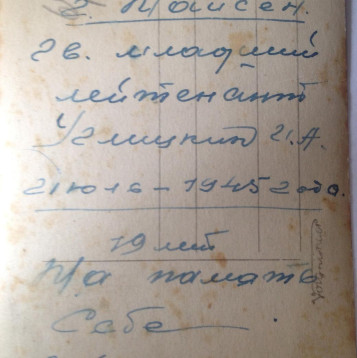 г. Мейсен.
гв. младший
лейтенант
Углицкий
июль – 1945 года.
19 лет
На память
Себе